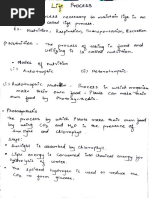 Life Process
process necessary to maintain life in an
called life process.
Ex: Nutrition, Respiration, Transportation, Excretion
Nutrition - The process of taking in food and
utilizing it is called nutrition.
Modes of nutrition
(1) Autotrophic (2) Heterotrophic
Autotrophic - mode of nutrition in which organism
make their own food. Plants can make their
own food by Photosynthesis.
Photosynthesis
The process by which plants make their own food
by using CO2 and H2O in the presence of
sunlight and chlorophyll
Sunlight is absorbed by chlorophyll
Light energy is converted into chemical energy and
hydrolysis of water.
The hydrogen is used to reduce the
CO2 to glucose.